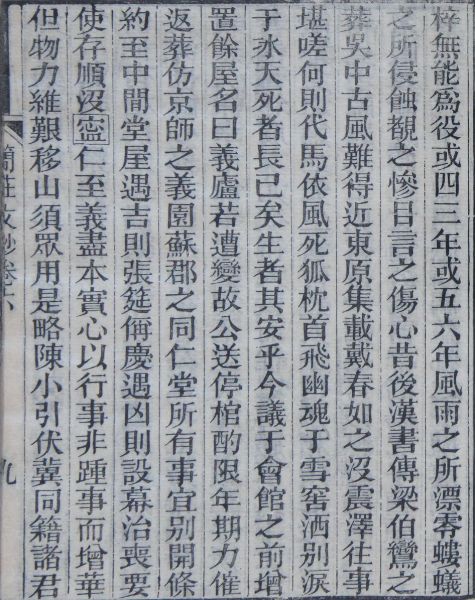 梓無能爲役或四三年或五六年風雨之所漂零螻蟻
之所侵蝕覩之慘目言之傷心昔後漢書傳梁伯鸞之
葬吳中古風難得近東原集載戴春如之沒震澤往事
堪嗟何則代馬依風死狐枕首飛幽魂于雪窖洒别淚
于氷天死者長已矣生者其安乎今議于會館之前增
置餘屋名曰義廬若遭變故公送停棺酌限年期力催
返葬仿京師之義園蘇郡之同仁堂所有事宜别開條
約至中間堂屋遇吉則張筵侑慶遇凶則設幕治喪要
使存順沒寍仁至義盡本實心以行事非踵事而增華
但物力維艱移山須眾用是略陳小引伏冀同籍諸君
文鈔卷六
九